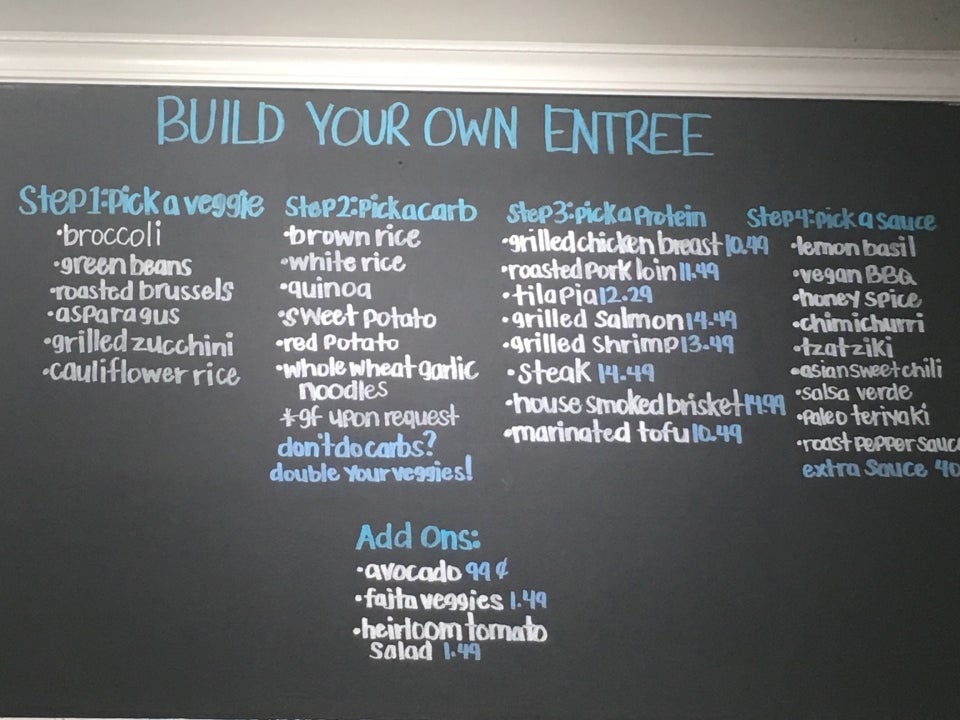 BUILD YOUR OWN ENTREE
Step 1: Pick a veggie
•broccoli
•green beans
•roasted brussels
•asparagus
•grilled zucchini
•cauliflower rice
Step 2: Pick a carb
•brown rice
•white rice
•quinoa
•sweet potato
•red potato
•whole wheat garlic
noodles
*gf upon request
don't do carbs?
double your veggies!
Step 3: pick a Protein
•grilled chicken breast 10.49
•roasted pork loin 11.49
•tilapia 12.29
•grilled Salmon 14.49
•grilled shrimp 13.49
•steak 14.49
•house smoked brisket 14.99
•marinated tofu 10.49
Step 4: pick a sauce
•lemon basil
•vegan BBQ
•honey spice
•chimichurri
•tzatziki
•asian sweet chili
•salsa verde
•Paleo teriyaki
•roast pepper sauc
extra sauce 40
Add Ons:
•avocado 99¢
•fajita veggies 1.49
•heirloom tomato
Salad 1.49